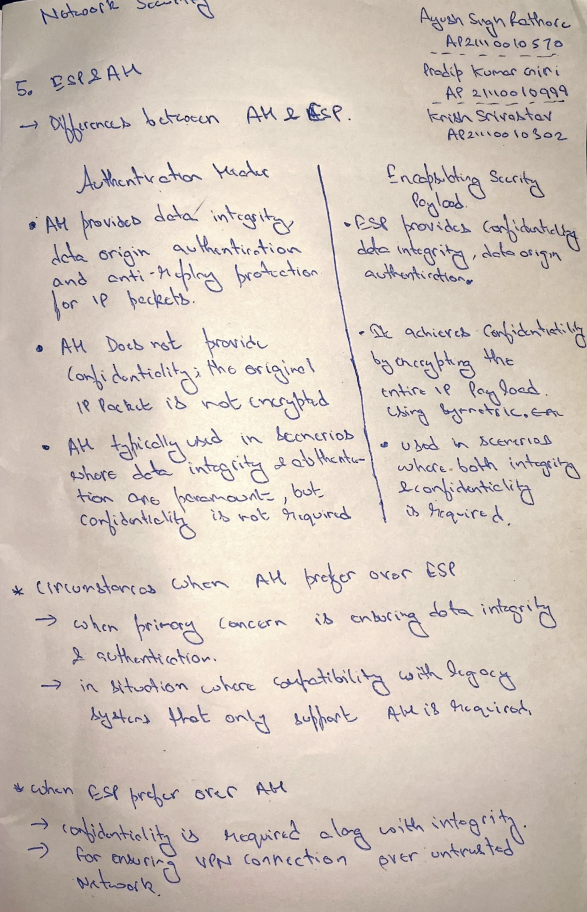 Network Security
Ayush Sign Rathore
AP21110010570
Pradip Kumar Giri
AP 21110010999
Krish Srivastav
AP21110010302
5. ESP & AH
→ Differences between AH & ESP.
Authentication Header
• AH provides data integrity,
data origin authentication
and anti-replay protection
for IP packets.
• AH Does not provide
Confidentiality; the original
IP Packet is not encrypted
• AH typically used in scenerios
where data integrity & authentica-
tion are paramount, but
confidentiality is not required
Encapsulting Security
Payload
• ESP provides Confidentiality
data integrity, data origin
authentication.
• It achieves Confidentiality
by encrypting the
entire IP Payload.
Using Symmetric.
• used in scenerios
where both integrity
& confidentiality
is required.
* Circumstances when AH prefer over ESP
→ when primary concern is ensuring data integrity
& authentication.
→ in situation where compatibility with legacy
systems that only support AH is required.
* when ESP prefer over AH
→ confidentiality is required along with integrity.
→ for ensuring VPN connection over untrusted
Network.